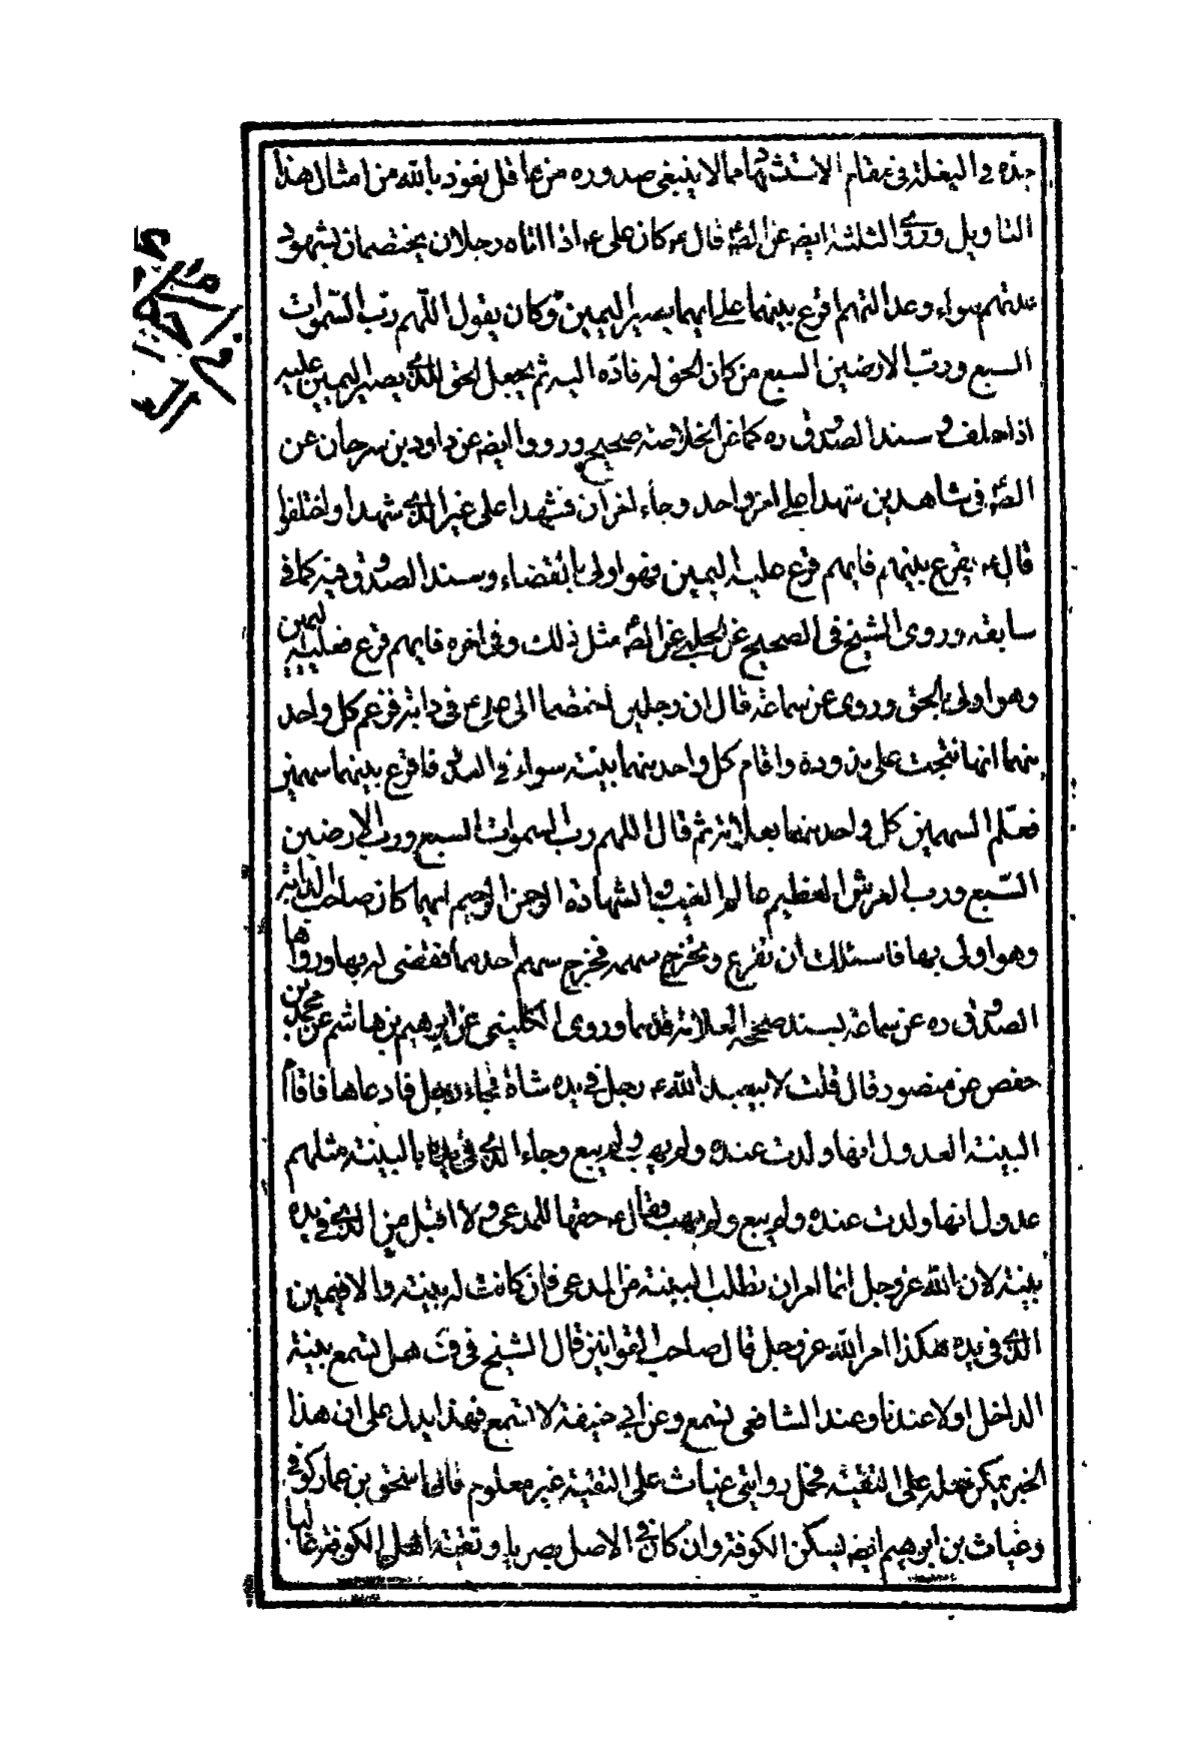 هذه في البغلة في مقام الاستشهاد مما لا ينبغي صدوره من عاقل نعوذ بالله من امثال هذا
التاويل وروى الثلثة ايضه عن الصّ قال ع كان على ع اذا اتاه رجلان يختصمان بشهود
عدتهم سواء وعدالتهم اقرع بينهما على ايهما يصير اليمين وكان يقول اللّهم ربّ السّموات
السبع وربّ الارضين السبع من كان الحق له فادّه اليه ثم يجعل الحق للذى يصير اليمين عليه
اذا حلف و سند الصدوق ره كما عن الخلاصه صحيح ورووا ايضه عن داود بن سرحان عن
الصّ فى شاهدين شهدا على امر واحد وجاء اخران فشهدا على غير الذى شهدا واختلفوا
قال ع يقرع بينهم فايهم قرع عليه اليمين فهو اولى بالقضاء وسند الصدوق فيه كما فى
سابقه وروى الشيخ فى الصحيح عن الحلبى عن الصّ مثل ذلك وفى اخره فايهم قرع فعليه اليمين
وهو اولى بالحق وروى عن سماعة قال ان رجلين اختصما الى على ع فى دابة فزعم كل واحد
منهما انها نتجت على مذوده واقام كل واحد منهما بينة سواء فى العدد فاقرع بينهما سهمين
فعلّم السهمين كل واحد منهما بعلامة ثم قال اللهم رب السموات السبع ورب الارضين
السّبع ورب العرش العظيم عالم الغيب والشهادة الرحمن الرحيم ايهما كان صاحب الدابة
وهو اولى بها فاسئلك ان تقرع وتخرج سهمه فخرج سهم احدهما فقضى له بها ورواها
الصدوق ره عن سماعة بسند صححه العلامة فيهما وروى الكلينى عن ابرهيم بن هاشم عن محمد بن
حفص عن منصور قال قلت لابيعبد الله ع رجل فى يده شاة فجاء رجل فادعاها فاقام
البينة العدول انها ولدت عنده ولم يهب ولم يبع وجاء الذى فى يده بالبينة مثلهم
عدول انها ولدت عنده ولم يبع ولم يهب فقال ع حقها للمدعى ولا اقبل من الذى فى يده
بينة لان الله عز وجل انما امر ان تطلب البينة من المدعى فان كانت له بينة والا فيمين
الذى فى يده هكذا امر الله عز وجل قال صاحب القوانين قال الشيخ فى ف هل تسمع بينة
الداخل اولا عندنا وعند الشافعى تسمع وعن ابى حنيفة لا تسمع فهذا يدل على ان هذا
الخبر يمكن حمله على التقية فحمل روايتى غياث على التقية غير معلوم فان اسحق بن عمار كوفى
وغياث بن ابرهيم ايضه يسكن الكوفة وان كان فى الاصل بصريا وتقية اهل الكوفة غالبا